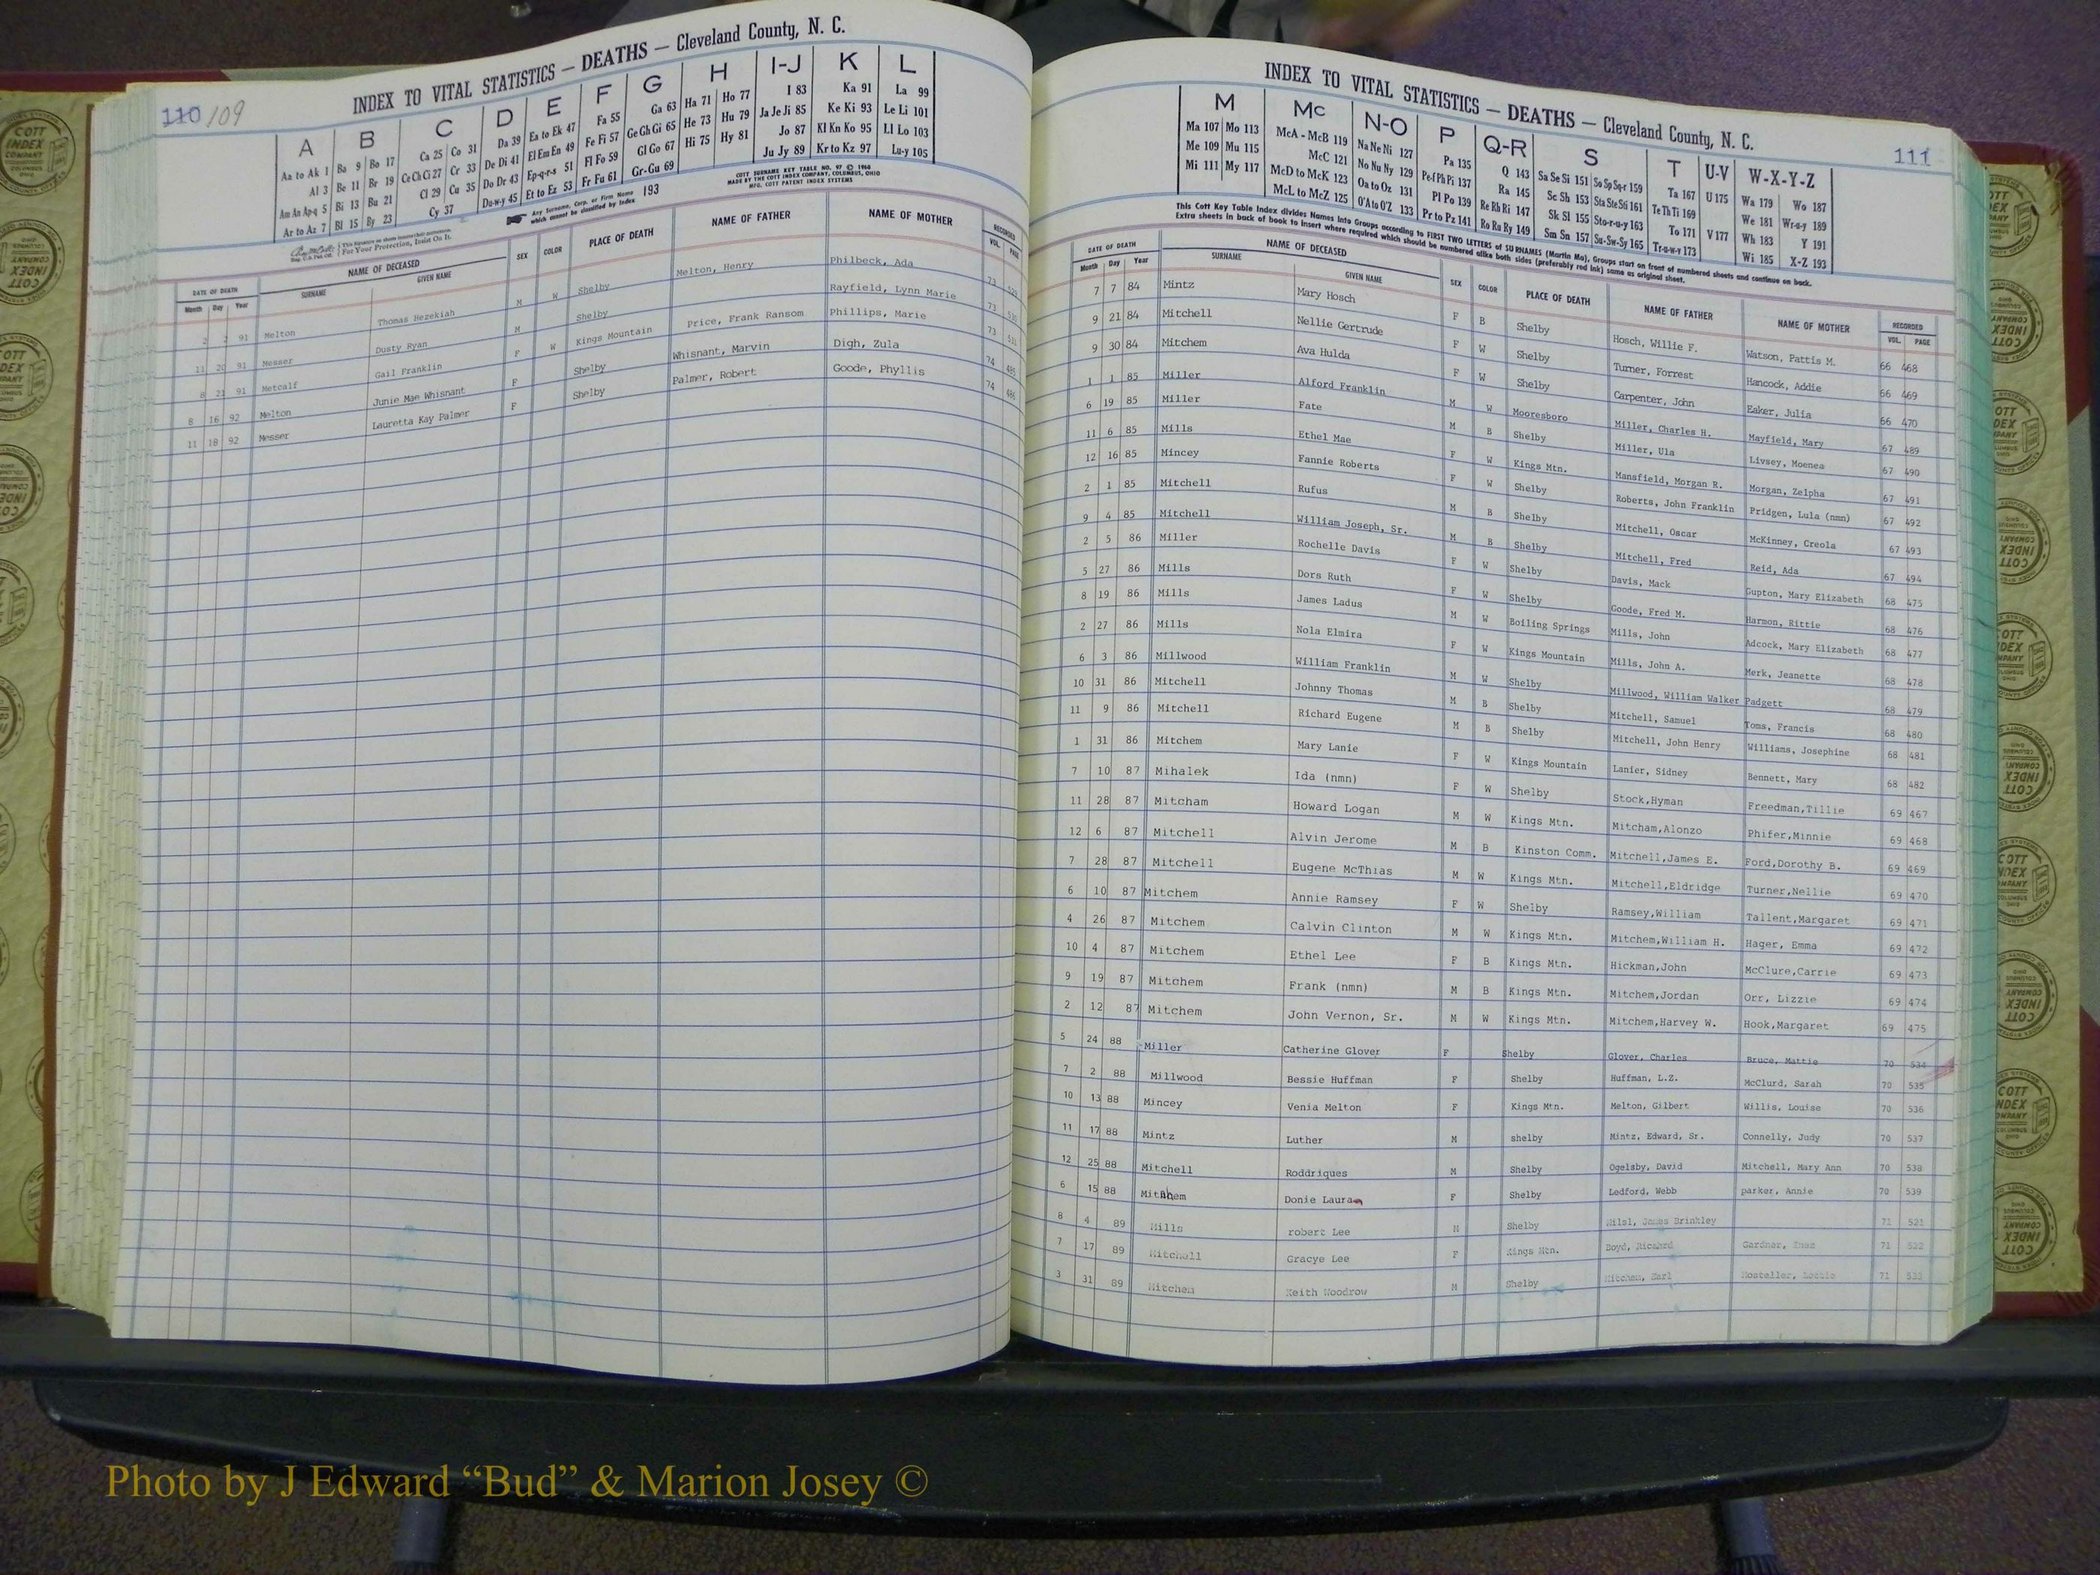 110 109
INDEX TO VITAL STATISTICS — DEATHS — Cleveland County, N. C.
A B C D E F G H I-J K L
Aa to Ak 1 Ba 9 Bo 17 Ca 25 Co 31 Da 39 Ea to Ek 47 Fa 55 Ga 63 Ha 71 Ho 77 I 83 Ka 91 La 99
Al 3 Be 11 Br 19 Ce Ch Ci 27 Cr 33 De Di 41 El Em En 49 Fe Fi 57 Ge Gh Gi 65 He 73 Hu 79 Ja Je Ji 85 Ke Ki 93 Le Li 101
Am An Ap-q 5 Bi 13 Bu 21 Cl 29 Cu 35 Do Dr 43 Ep-q-r-s 51 Fl Fo 59 Gl Go 67 Hi 75 Hy 81 Jo 87 Kl Kn Ko 95 Ll Lo 103
Ar to Az 7 Bl 15 By 23 Cy 37 Du-w-y 45 Et to Ez 53 Fr Fu 61 Gr-Gu 69 Ju Jy 89 Kr to Kz 97 Lu-y 105
Any Surname, Corp. or Firm Name which cannot be classified by Index 193
COTT SURNAME KEY TABLE NO. 97 © 1960
MADE BY THE COTT INDEX COMPANY, COLUMBUS, OHIO
MFG. COTT PATENT INDEX SYSTEMS
For Your Protection, Insist On It.
DATE OF DEATH NAME OF DECEASED SEX COLOR PLACE OF DEATH NAME OF FATHER NAME OF MOTHER RECORDED
Month Day Year SURNAME GIVEN NAME VOL. PAGE
2 2 91 Melton Thomas Hezekiah M W Shelby Melton, Henry Philbeck, Ada 73
11 20 91 Messer Dusty Ryan M Shelby Rayfield, Lynn Marie 73
8 21 91 Metcalf Gail Franklin F W Kings Mountain Price, Frank Ransom Phillips, Marie 73
8 16 92 Melton Junie Mae Whisnant F Shelby Whisnant, Marvin Digh, Zula 74 485
11 18 92 Messer Lauretta Kay Palmer F Shelby Palmer, Robert Goode, Phyllis 74 486
INDEX TO VITAL STATISTICS — DEATHS — Cleveland County, N. C.
111
M Mc N-O P Q-R S T U-V W-X-Y-Z
Ma 107 Mo 113 McA - McB 119 Na Ne Ni 127 Pa 135 Q 143 Sa Se Si 151 So Sp Sq-r 159 Ta 167 U 175 Wa 179 Wo 187
Me 109 Mu 115 McC 121 No Nu Ny 129 Pe-f Ph Pi 137 Ra 145 Sc Sh 153 Sta Ste Sti 161 Te Th Ti 169 We 181 Wr-u-y 189
Mi 111 My 117 McD to McK 123 Oa to Oz 131 Pl Po 139 Re Rh Ri 147 Sk Sl 155 Sto-r-u-y 163 To 171 V 177 Wh 183 Y 191
McL to McZ 125 O'A to O'Z 133 Pr to Pz 141 Ro Ru Ry 149 Sm Sn 157 Su-Sw-Sy 165 Tr-u-w-y 173 Wi 185 X-Z 193
This Cott Key Table Index divides Names into Groups according to FIRST TWO LETTERS of SURNAMES (Martin Ma), Groups start on front of numbered sheets and continue on back.
Extra sheets in back of book to insert where required which should be numbered alike both sides (preferably red ink) same as original sheet.
DATE OF DEATH NAME OF DECEASED SEX COLOR PLACE OF DEATH NAME OF FATHER NAME OF MOTHER RECORDED
Month Day Year SURNAME GIVEN NAME VOL. PAGE
7 7 84 Mintz Mary Hosch F B Shelby Hosch, Willie F. Watson, Pattis M. 66 468
9 21 84 Mitchell Nellie Gertrude F W Shelby Turner, Forrest Hancock, Addie 66 469
9 30 84 Mitchem Ava Hulda F W Shelby Carpenter, John Eaker, Julia 66 470
1 1 85 Miller Alford Franklin M W Mooresboro Miller, Charles H. Mayfield, Mary 67 489
6 19 85 Miller Fate M B Shelby Miller, Ula Livsey, Moenea 67 490
11 6 85 Mills Ethel Mae F W Kings Mtn. Mansfield, Morgan R. Morgan, Zelpha 67 491
12 16 85 Mincey Fannie Roberts F W Shelby Roberts, John Franklin Pridgen, Lula (nmn) 67 492
2 1 85 Mitchell Rufus M B Shelby Mitchell, Oscar McKinney, Creola 67 493
9 4 85 Mitchell William Joseph, Sr. M B Shelby Mitchell, Fred Reid, Ada 67 494
2 5 86 Miller Rochelle Davis F W Shelby Davis, Mack Gupton, Mary Elizabeth 68 475
5 27 86 Mills Dors Ruth F W Shelby Goode, Fred M. Harmon, Rittie 68 476
8 19 86 Mills James Ladus M W Boiling Springs Mills, John Adcock, Mary Elizabeth 68 477
2 27 86 Mills Nola Elmira F W Kings Mountain Mills, John A. Merk, Jeanette 68 478
6 3 86 Millwood William Franklin M W Shelby Millwood, William Walker Padgett 68 479
10 31 86 Mitchell Johnny Thomas M B Shelby Mitchell, Samuel Toms, Francis 68 480
11 9 86 Mitchell Richard Eugene M B Shelby Mitchell, John Henry Williams, Josephine 68 481
1 31 86 Mitchem Mary Lanie F W Kings Mountain Lanier, Sidney Bennett, Mary 68 482
7 10 87 Mihalek Ida (nmn) F W Shelby Stock,Hyman Freedman,Tillie 69 467
11 28 87 Mitcham Howard Logan M W Kings Mtn. Mitcham,Alonzo Phifer,Minnie 69 468
12 6 87 Mitchell Alvin Jerome M B Kinston Comm. Mitchell,James E. Ford,Dorothy B. 69 469
7 28 87 Mitchell Eugene McThias M W Kings Mtn. Mitchell,Eldridge Turner,Nellie 69 470
6 10 87 Mitchem Annie Ramsey F W Shelby Ramsey,William Tallent,Margaret 69 471
4 26 87 Mitchem Calvin Clinton M W Kings Mtn. Mitchem,William H. Hager, Emma 69 472
10 4 87 Mitchem Ethel Lee F B Kings Mtn. Hickman,John McClure,Carrie 69 473
9 19 87 Mitchem Frank (nmn) M B Kings Mtn. Mitchem,Jordan Orr, Lizzie 69 474
2 12 87 Mitchem John Vernon, Sr. M W Kings Mtn. Mitchem,Harvey W. Hook,Margaret 69 475
5 24 88 Miller Catherine Glover F Shelby Glover, Charles Bruce, Mattie 70 534
7 2 88 Millwood Bessie Huffman F Shelby Huffman, L.Z. McClurd, Sarah 70 535
10 13 88 Mincey Venia Melton F Kings Mtn. Melton, Gilbert Willis, Louise 70 536
11 17 88 Mintz Luther M shelby Mintz, Edward, Sr. Connelly, Judy 70 537
12 25 88 Mitchell Roddriques M Shelby Ogelsby, David Mitchell, Mary Ann 70 538
6 15 88 Mitchem Donie Laura F Shelby Ledford, Webb parker, Annie 70 539
8 4 89 Mills robert Lee M Shelby Milsl, James Brinkley 71 521
7 17 89 Mitchell Gracye Lee F Kings Mtn. Boyd, Richard Gardner, Inez 71 522
3 31 89 Mitchem Keith Woodrow M Shelby Mitchem, Earl Mosteller, 71
Photo by J Edward “Bud” & Marion Josey ©